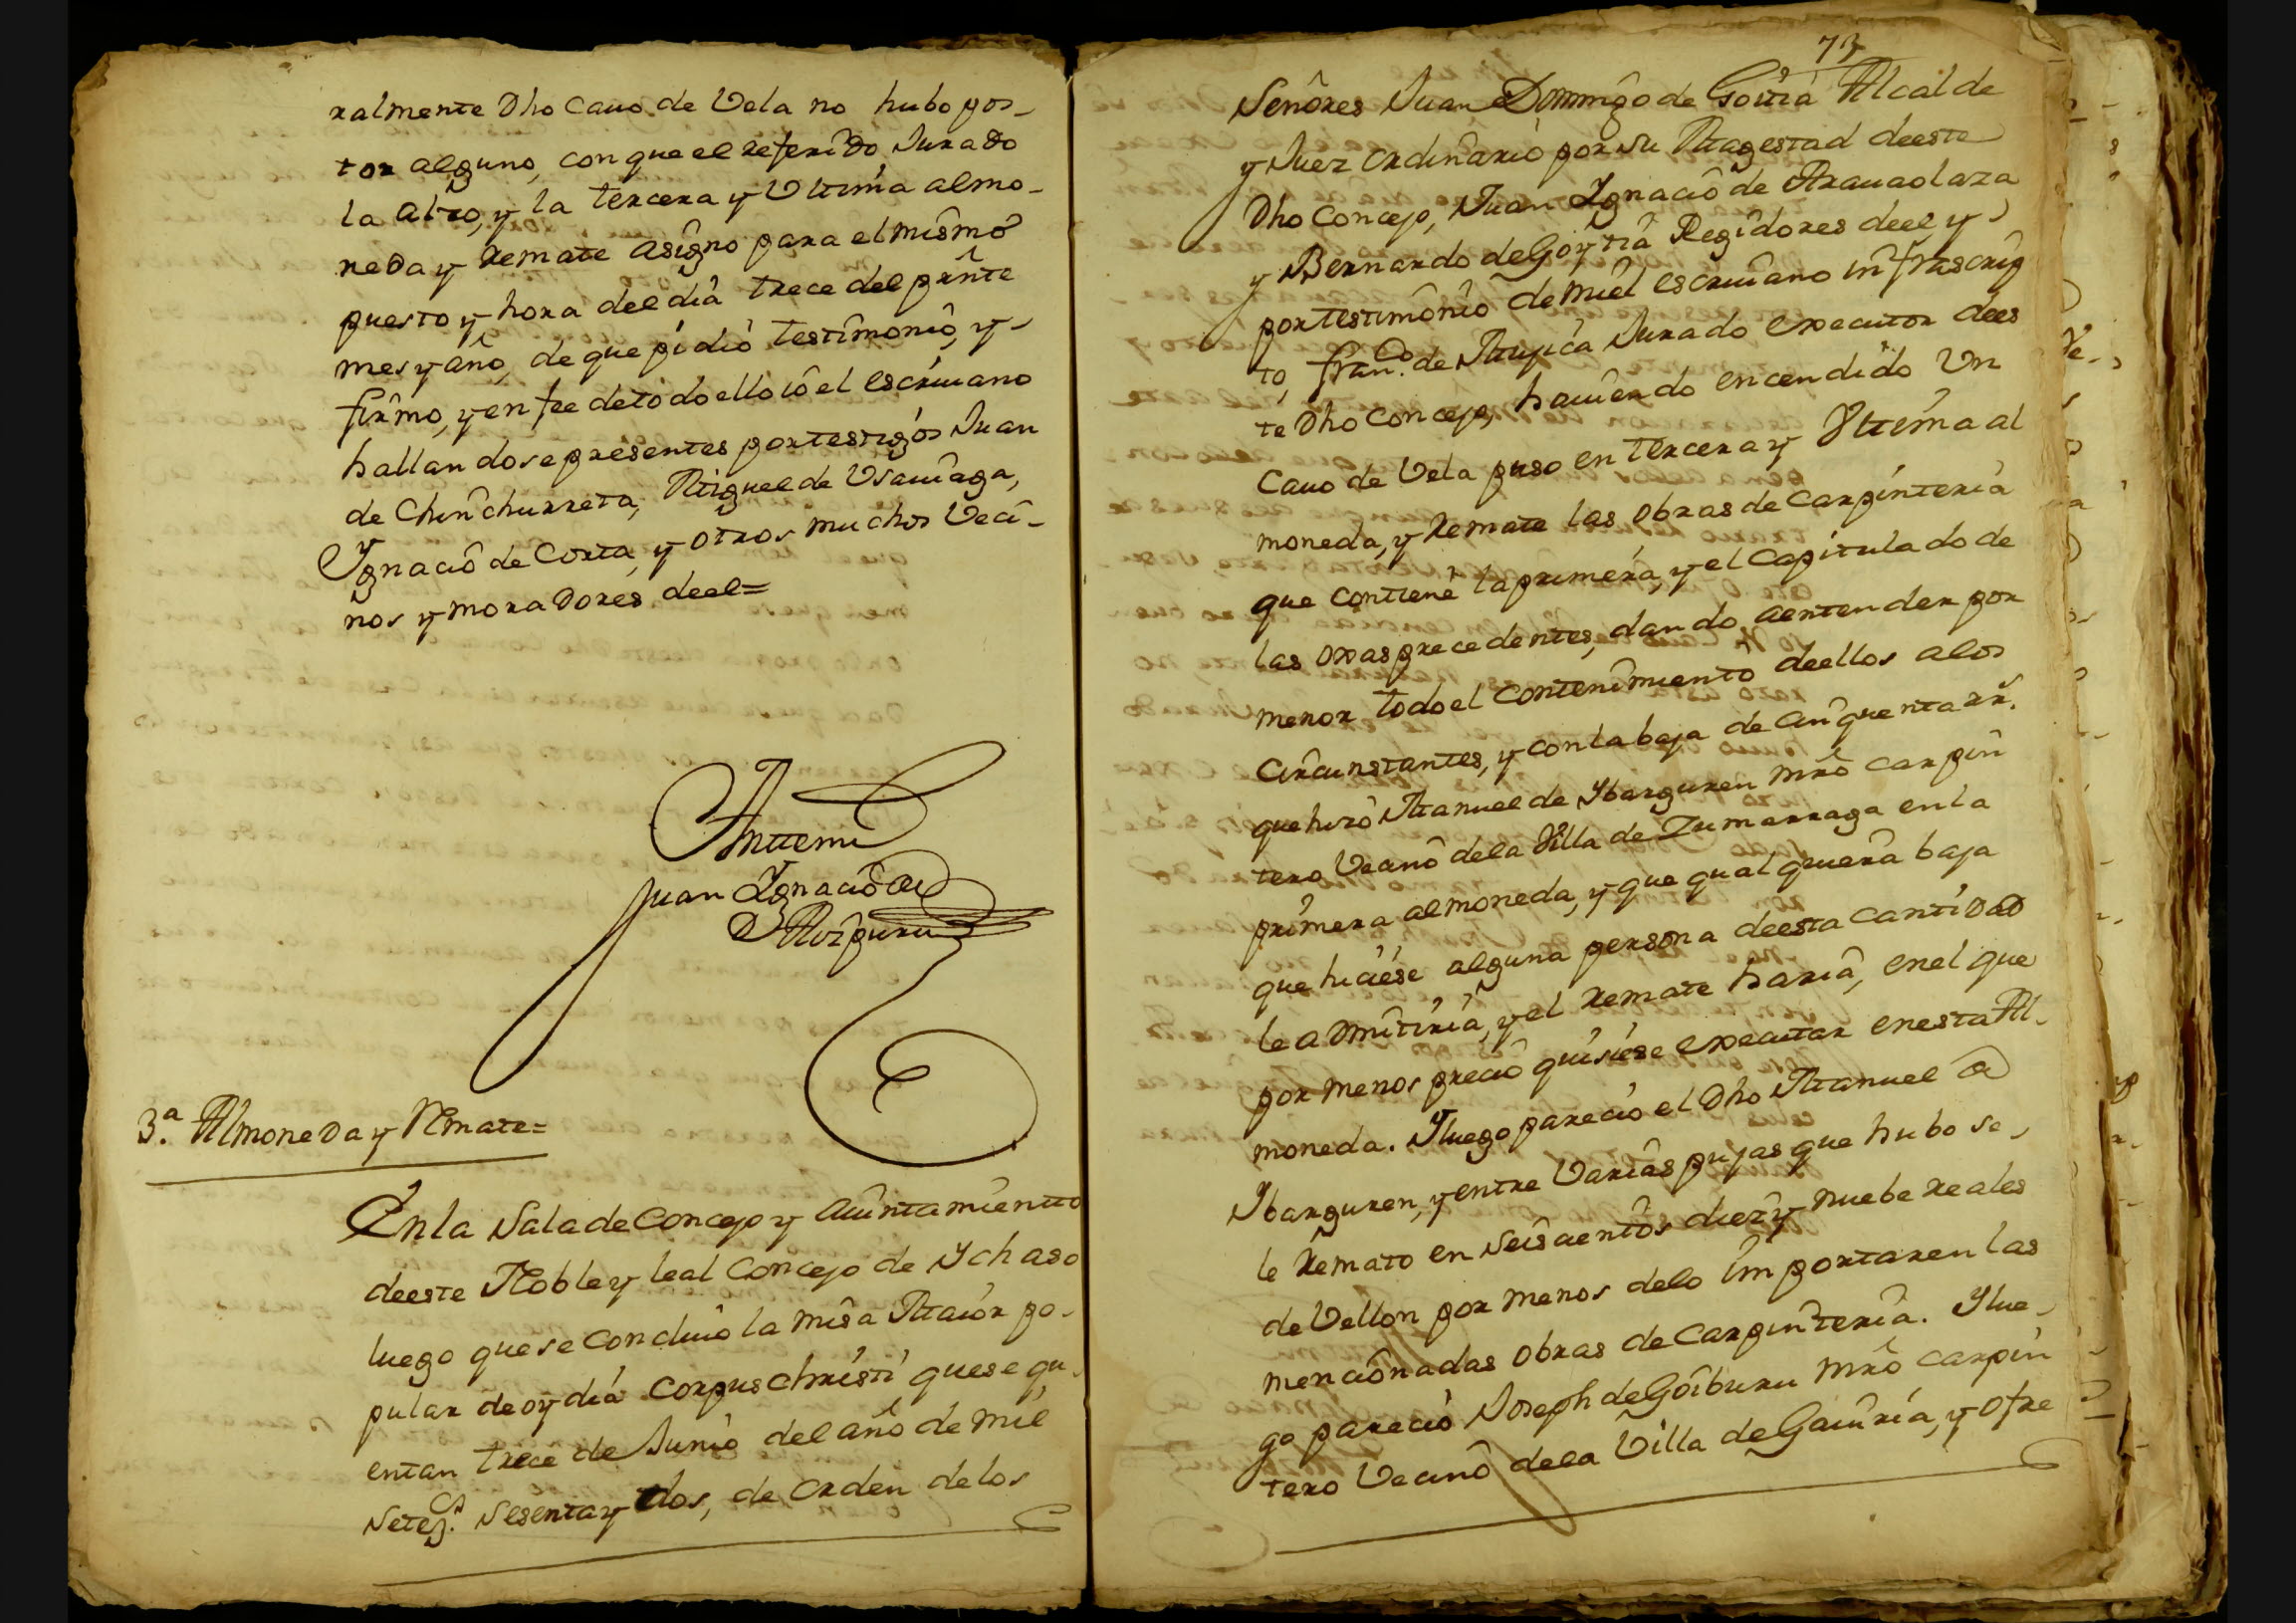 ralmente Dho Cauo de Vela no hubo pos-
tor alguno, con que el referido Jurado
la alzo, y la tercera y Ultima almo-
neda y Remate asigno para el mismo
puesto y hora del dia trece del prnte
mes y año, de que pidio testimonio, y
firmo, y en fee de todo ello io el escriuano
hallandose presentes por testigos Juan
de Chinchurreta, Miguel de Usauiaga,
Ygnacio de Corta, y otros muchos Veci-
nos y moradores deel=
Anttemi
Juan Ygnacio de
Azpuru
3.ª Almoneda y Remate=
En la Sala de Concejo y Auintamientto
deeste Noble y leal Concejo de Ychaso
luego que se concluio la misa Maior po-
pular de oy dia Corpus christi que se qu-
entan trece de Junio del año de mil
Setez.s Sesenta y dos, de orden de los
73
Señores Juan Domingo de Goitia Alcalde
y Juez ordinario por su Magestad deeste
Dho Concejo, Juan Ygnacio de Arauaolaza
y Bernardo de Goytia Regidores deel, y
por testimonio de mi el escriuano infrascrip
to, Fran.co de Mujica Jurado executor dees
te Dho Concejo, hauiendo encendido Un
Cauo de Vela puso en tercera y Ultima al
moneda, y Remate las obras de Carpinteria
que contiene la primera, y el Capitulado de
las oxas precedentes, dando aentender por
menor todo el contenimiento deellos a los
circunstantes, y con la baja de cinquenta rr.s
que hizo Manuel de Ybarguren mro carpin
tero Vecino de la Villa de Zumarraga en la
primera almoneda, y que qualquiera baja
que hiciese alguna persona deesta cantidad
le admitiria, y el Remate haria, en el que
por menos precio quisiese executar en esta Al-
moneda. Y luego parecio el Dho Manuel de
Ybarguren, y entre Varias pujas que hubo se
le Remato en Seiscientos diez y nuebe reales
de Vellon por menos de lo importaren las
mencionadas obras de Carpinteria. Y lue-
go parecio Joseph de Goiburu mro carpin
tero Vecino de la Villa de Gauiria, y ofre